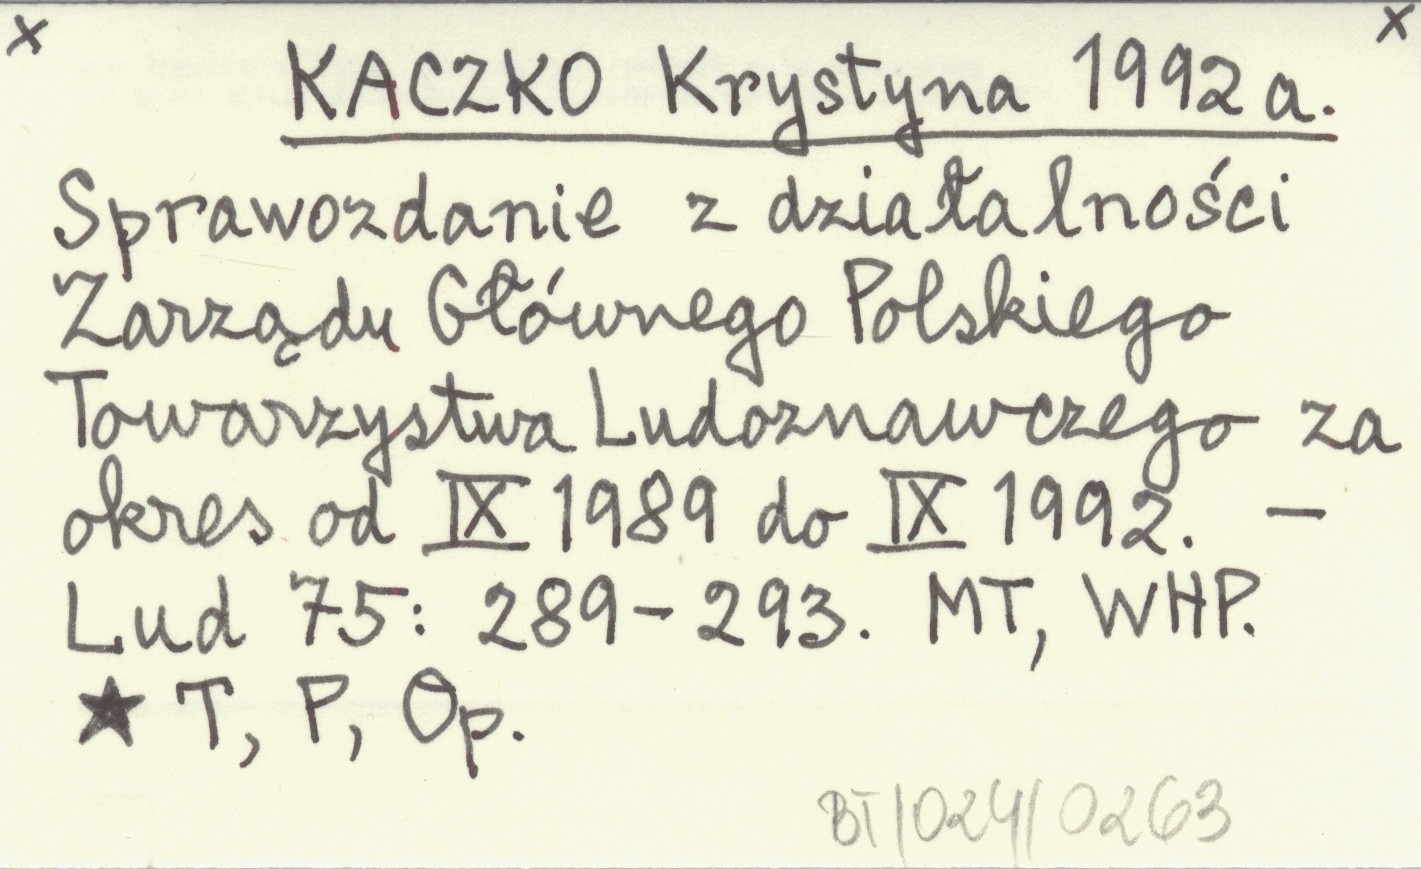 x x
KACZKO Krystyna 1992a.
Sprawozdanie z działalności
Zarządu Głównego Polskiego
Towarzystwa Ludoznawczego za
okres od IX 1989 do IX 1992. –
Lud 75: 289–293. MT, WHP.
★ T, P, Op.
BT/024/0263